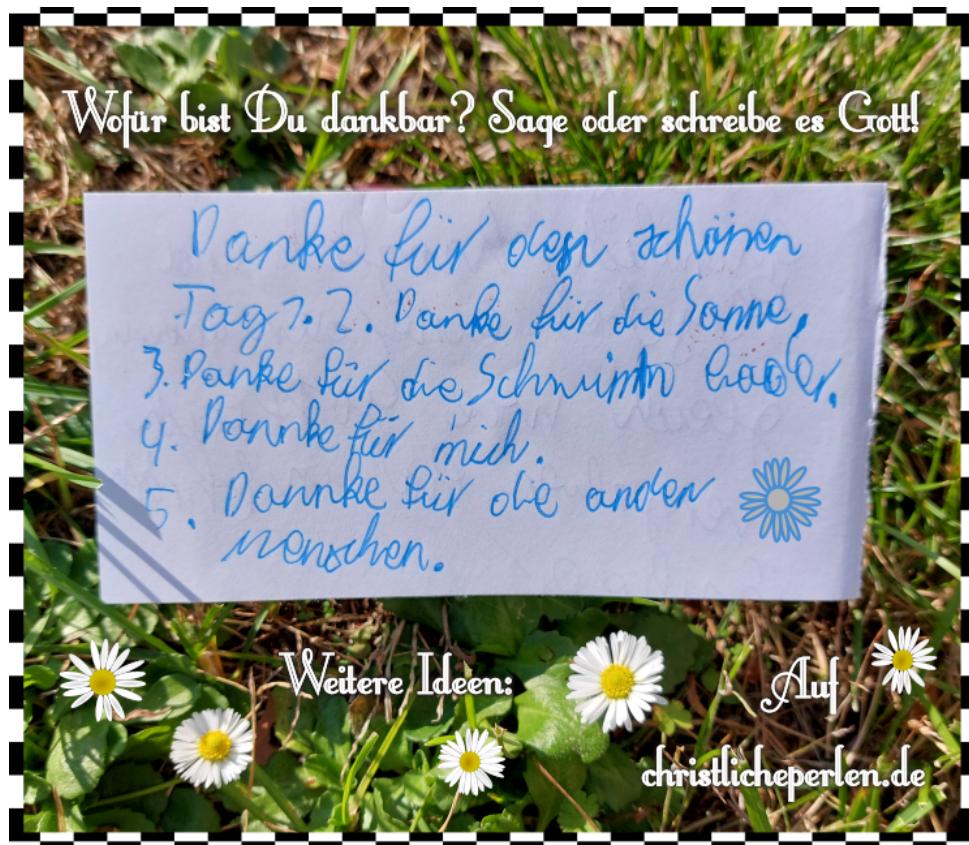 Wofür bist Du dankbar? Sage oder schreibe es Gott!
Danke für den schönen
Tag 1. 2. Danke für die Sonne.
3. Danke für die Schwimm bäder.
4. Dannke für mich.
5. Dannke für die anden
menschen.
Weitere Ideen:
Auf
christlicheperlen.de